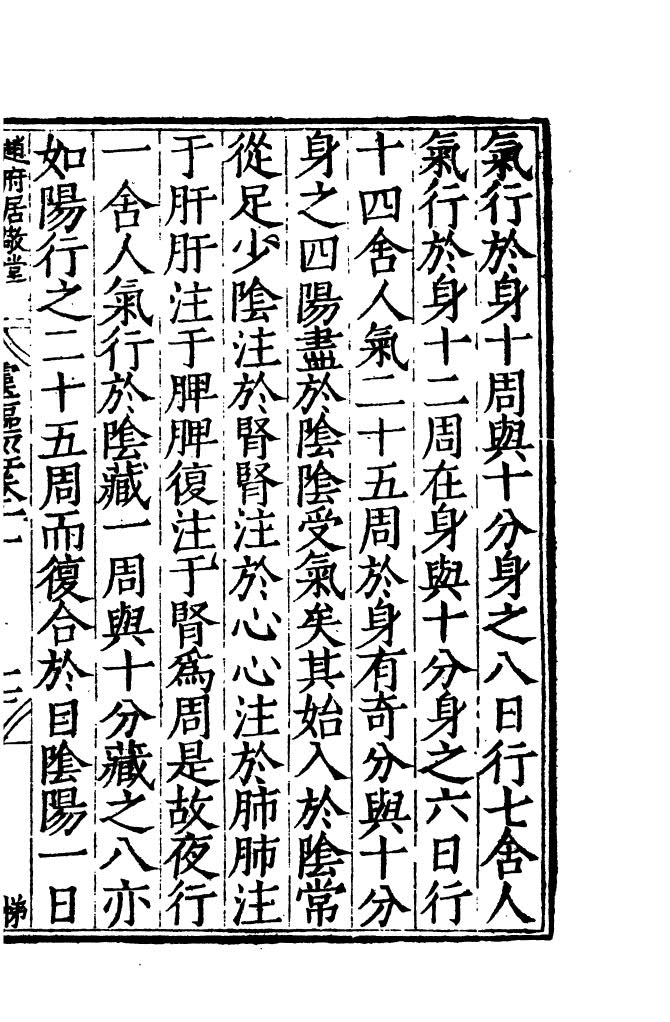 氣行於身十周與十分身之八日行七舍人
氣行於身十二周在身與十分身之六日行
十四舍人氣二十五周於身有奇分與十分
身之四陽盡於陰陰受氣矣其始入於陰常
從足少陰注於腎腎注於心心注於肺肺注
于肝肝注于脾脾復注于腎爲周是故夜行
一舍人氣行於陰藏一周與十分藏之八亦
如陽行之二十五周而復合於目陰陽一日
趙府居敬堂